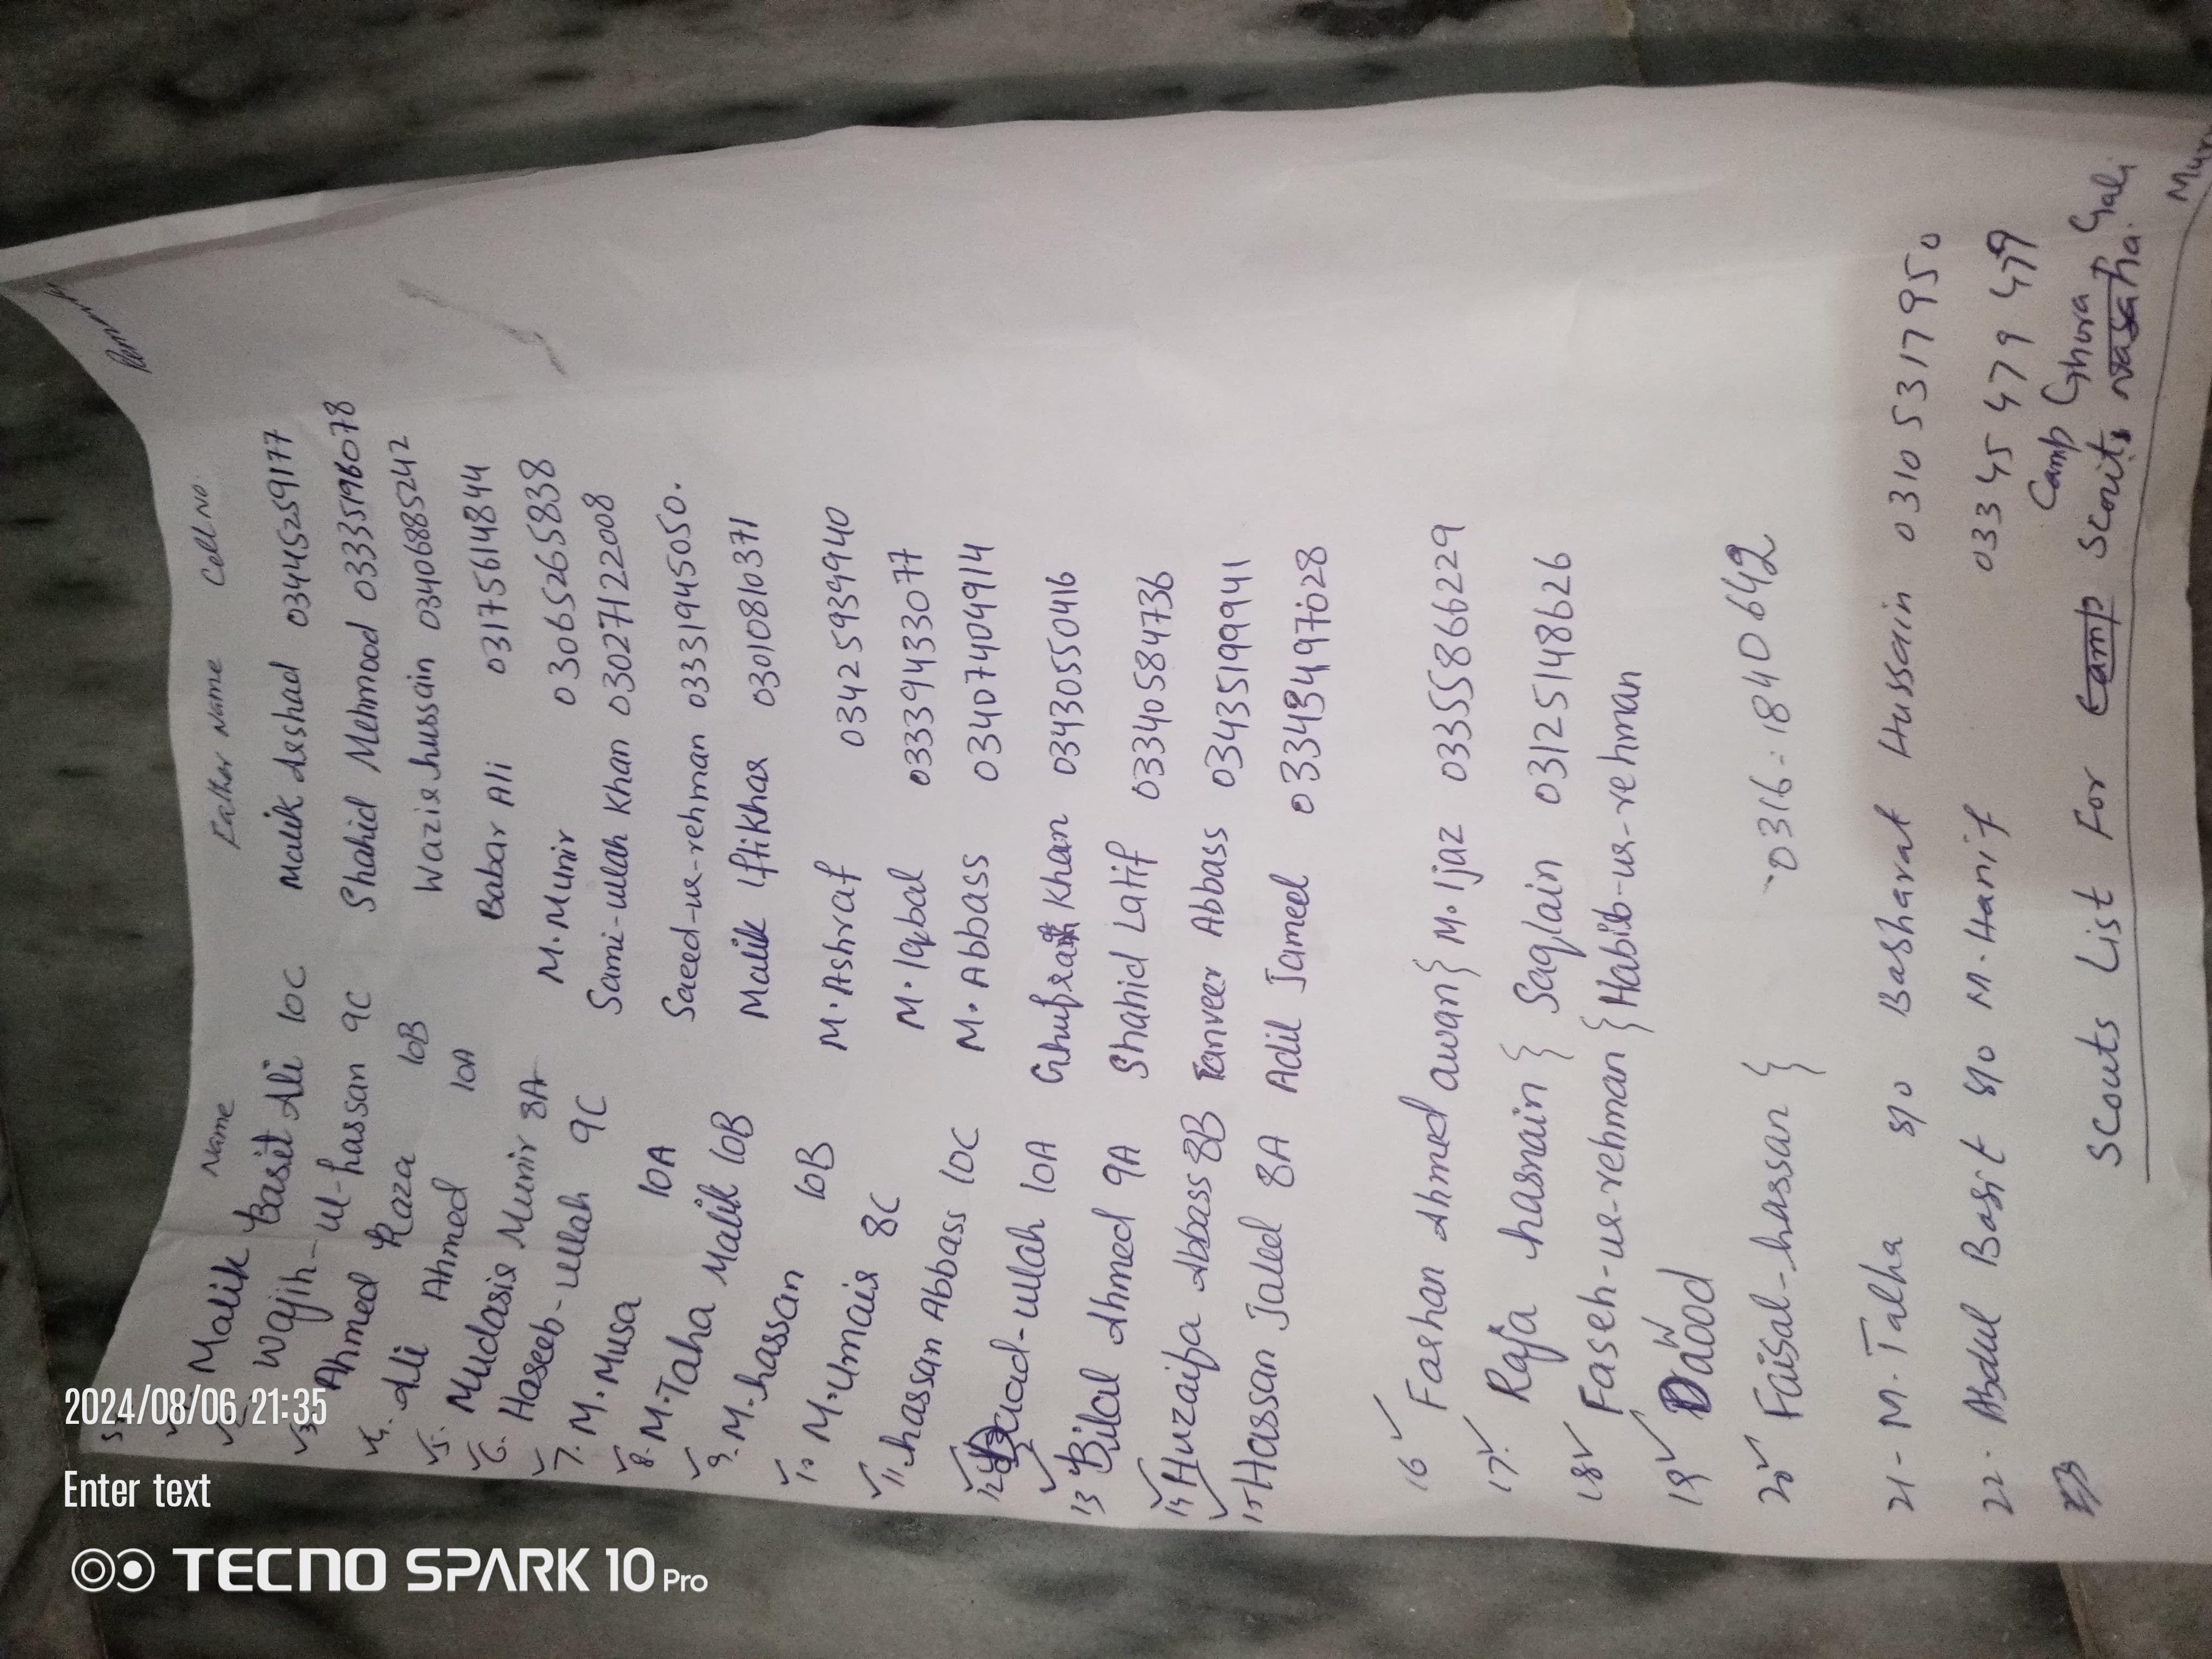 Name Father Name Cell No.
Malik Basit Ali 10C Malik Arshad 03445259177
Wajih-ul-hassan 9C Shahid Mehmood
3. Ahmed Raza 10B Wazir hussain 03406885242
4. Ali Ahmed 10A Babar Ali 03175614844
5. Mudasir Munir 8A M.Munir 03065265838
6. Haseeb-ullah 9C Sami-ullah Khan 03027122008
7. M.Musa 10A Saeed-ur-rehman 03331945050.
8. M.Taha Malik 10B Malik Iftikhar 03010810371
9. M.hassan 10B M.Ashraf 03425939940
10 M.Umair 8C M.Iqbal 03339433077
11. hassan Abbass 10C M.Abbass 03407404914
12 ullah 10A Khan 03430550416
13 Bilal Ahmed 9A Shahid Latif 03340584736
14 Huzaifa Abbass 8B Tanveer Abbass 03435199941
15 Hassan Jaleel 8A Adil Jameel
16 Farhan Ahmed awan } M.Ijaz 03355866229
17. Raja hasnain } Saqlain 03125148626
18 Faseh-ur-rehman { Habib-ur-rehman
19 Dawood
20 Faisal-hassan } 0316=1840642
21- M.Talha S/o Basharat Hussain 0310 5317950
22. Abdul Basit S/o M.Hanif 0334 5 479 479
Camp Ghora Gali
Scouts List For Camp Scouts
2024/08/06 21:35
Enter text
TECNO SPARK 10 Pro